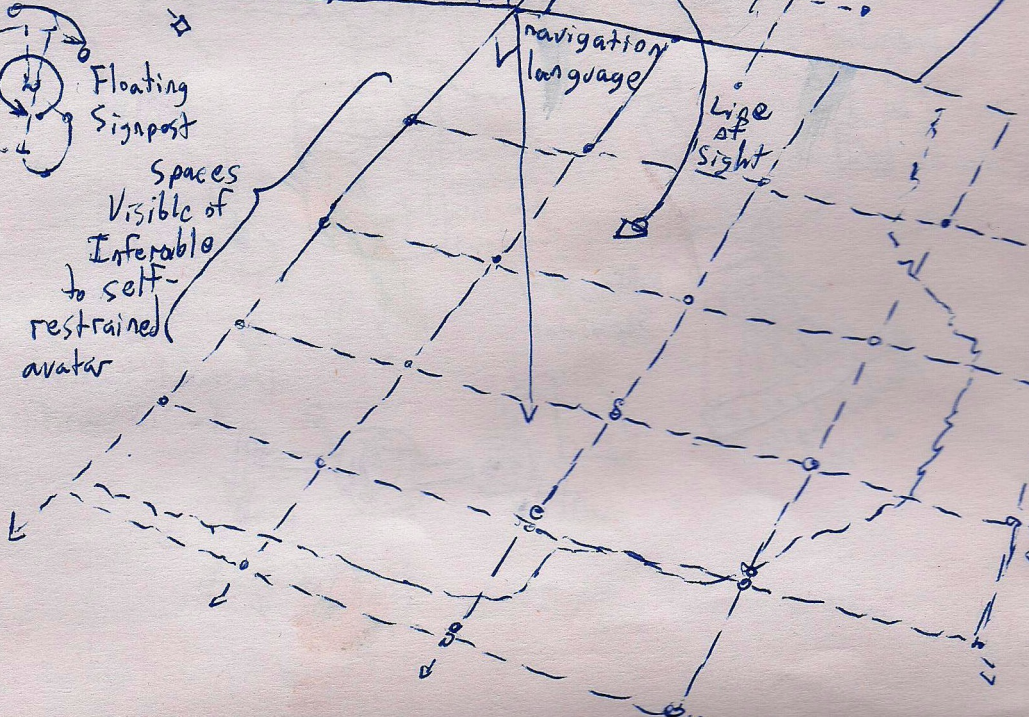 Floating
Signpost
navigation
language
Line
of
Sight
Spaces
Visible of
Inferable
to self-
restrained
avatar